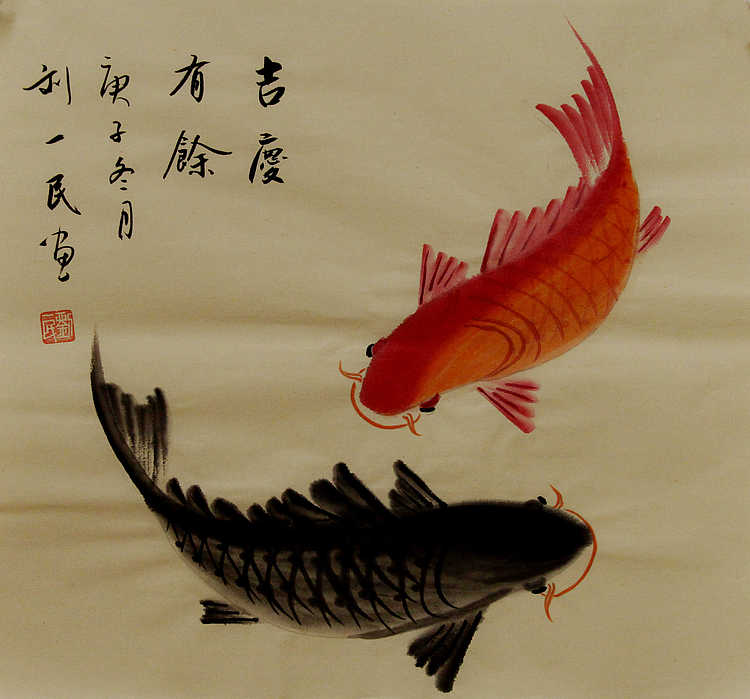 吉慶
有餘
庚子冬月
刘一民画